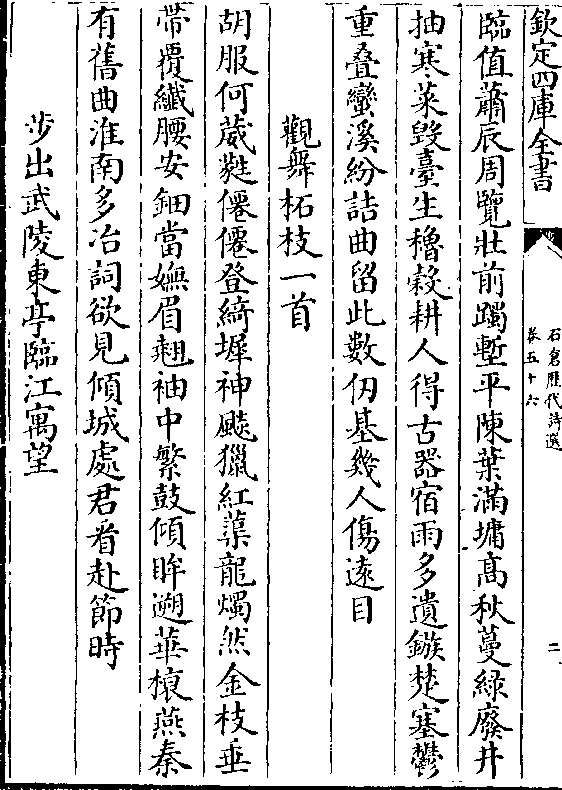 欽定四庫全書
石倉歷代詩選
卷五十六
二
臨值蕭辰周覽壯前躅塹平陳葉滿墉高秋蔓綠廢井
抽寒菜毀臺生穭穀耕人得古器宿雨多遺鏃楚塞鬱
重疊蠻溪紛詰曲留此數仞基幾人傷遠目
觀舞柘枝一首
胡服何葳蕤僊僊登綺墀神飈獵紅蕖龍燭然金枝垂
帶覆纖腰安鈿當嫵眉翹袖中繁鼓傾眸遡華榱燕秦
有舊曲淮南多冶詞欲見傾城處君看赴節時
步出武陵東亭臨江寓望